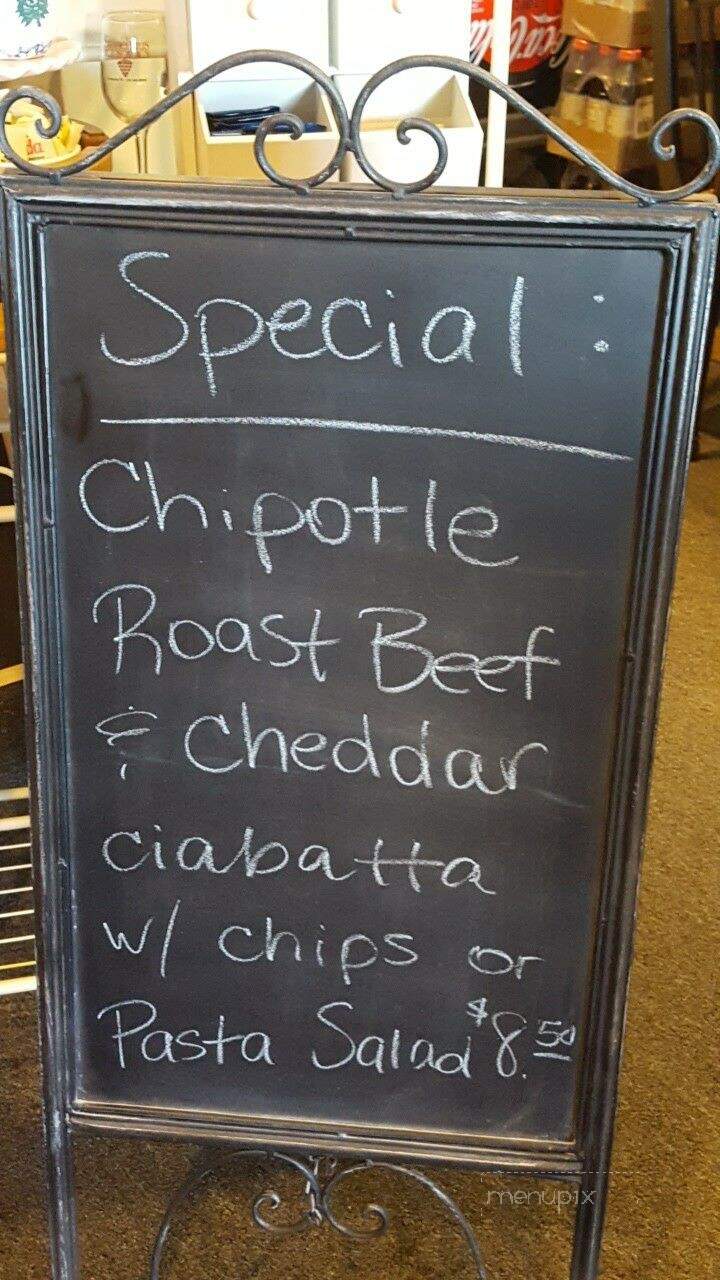 Special:
Chipotle
Roast Beef
& Cheddar
ciabatta
w/ chips or
Pasta Salad $8.50
menupix